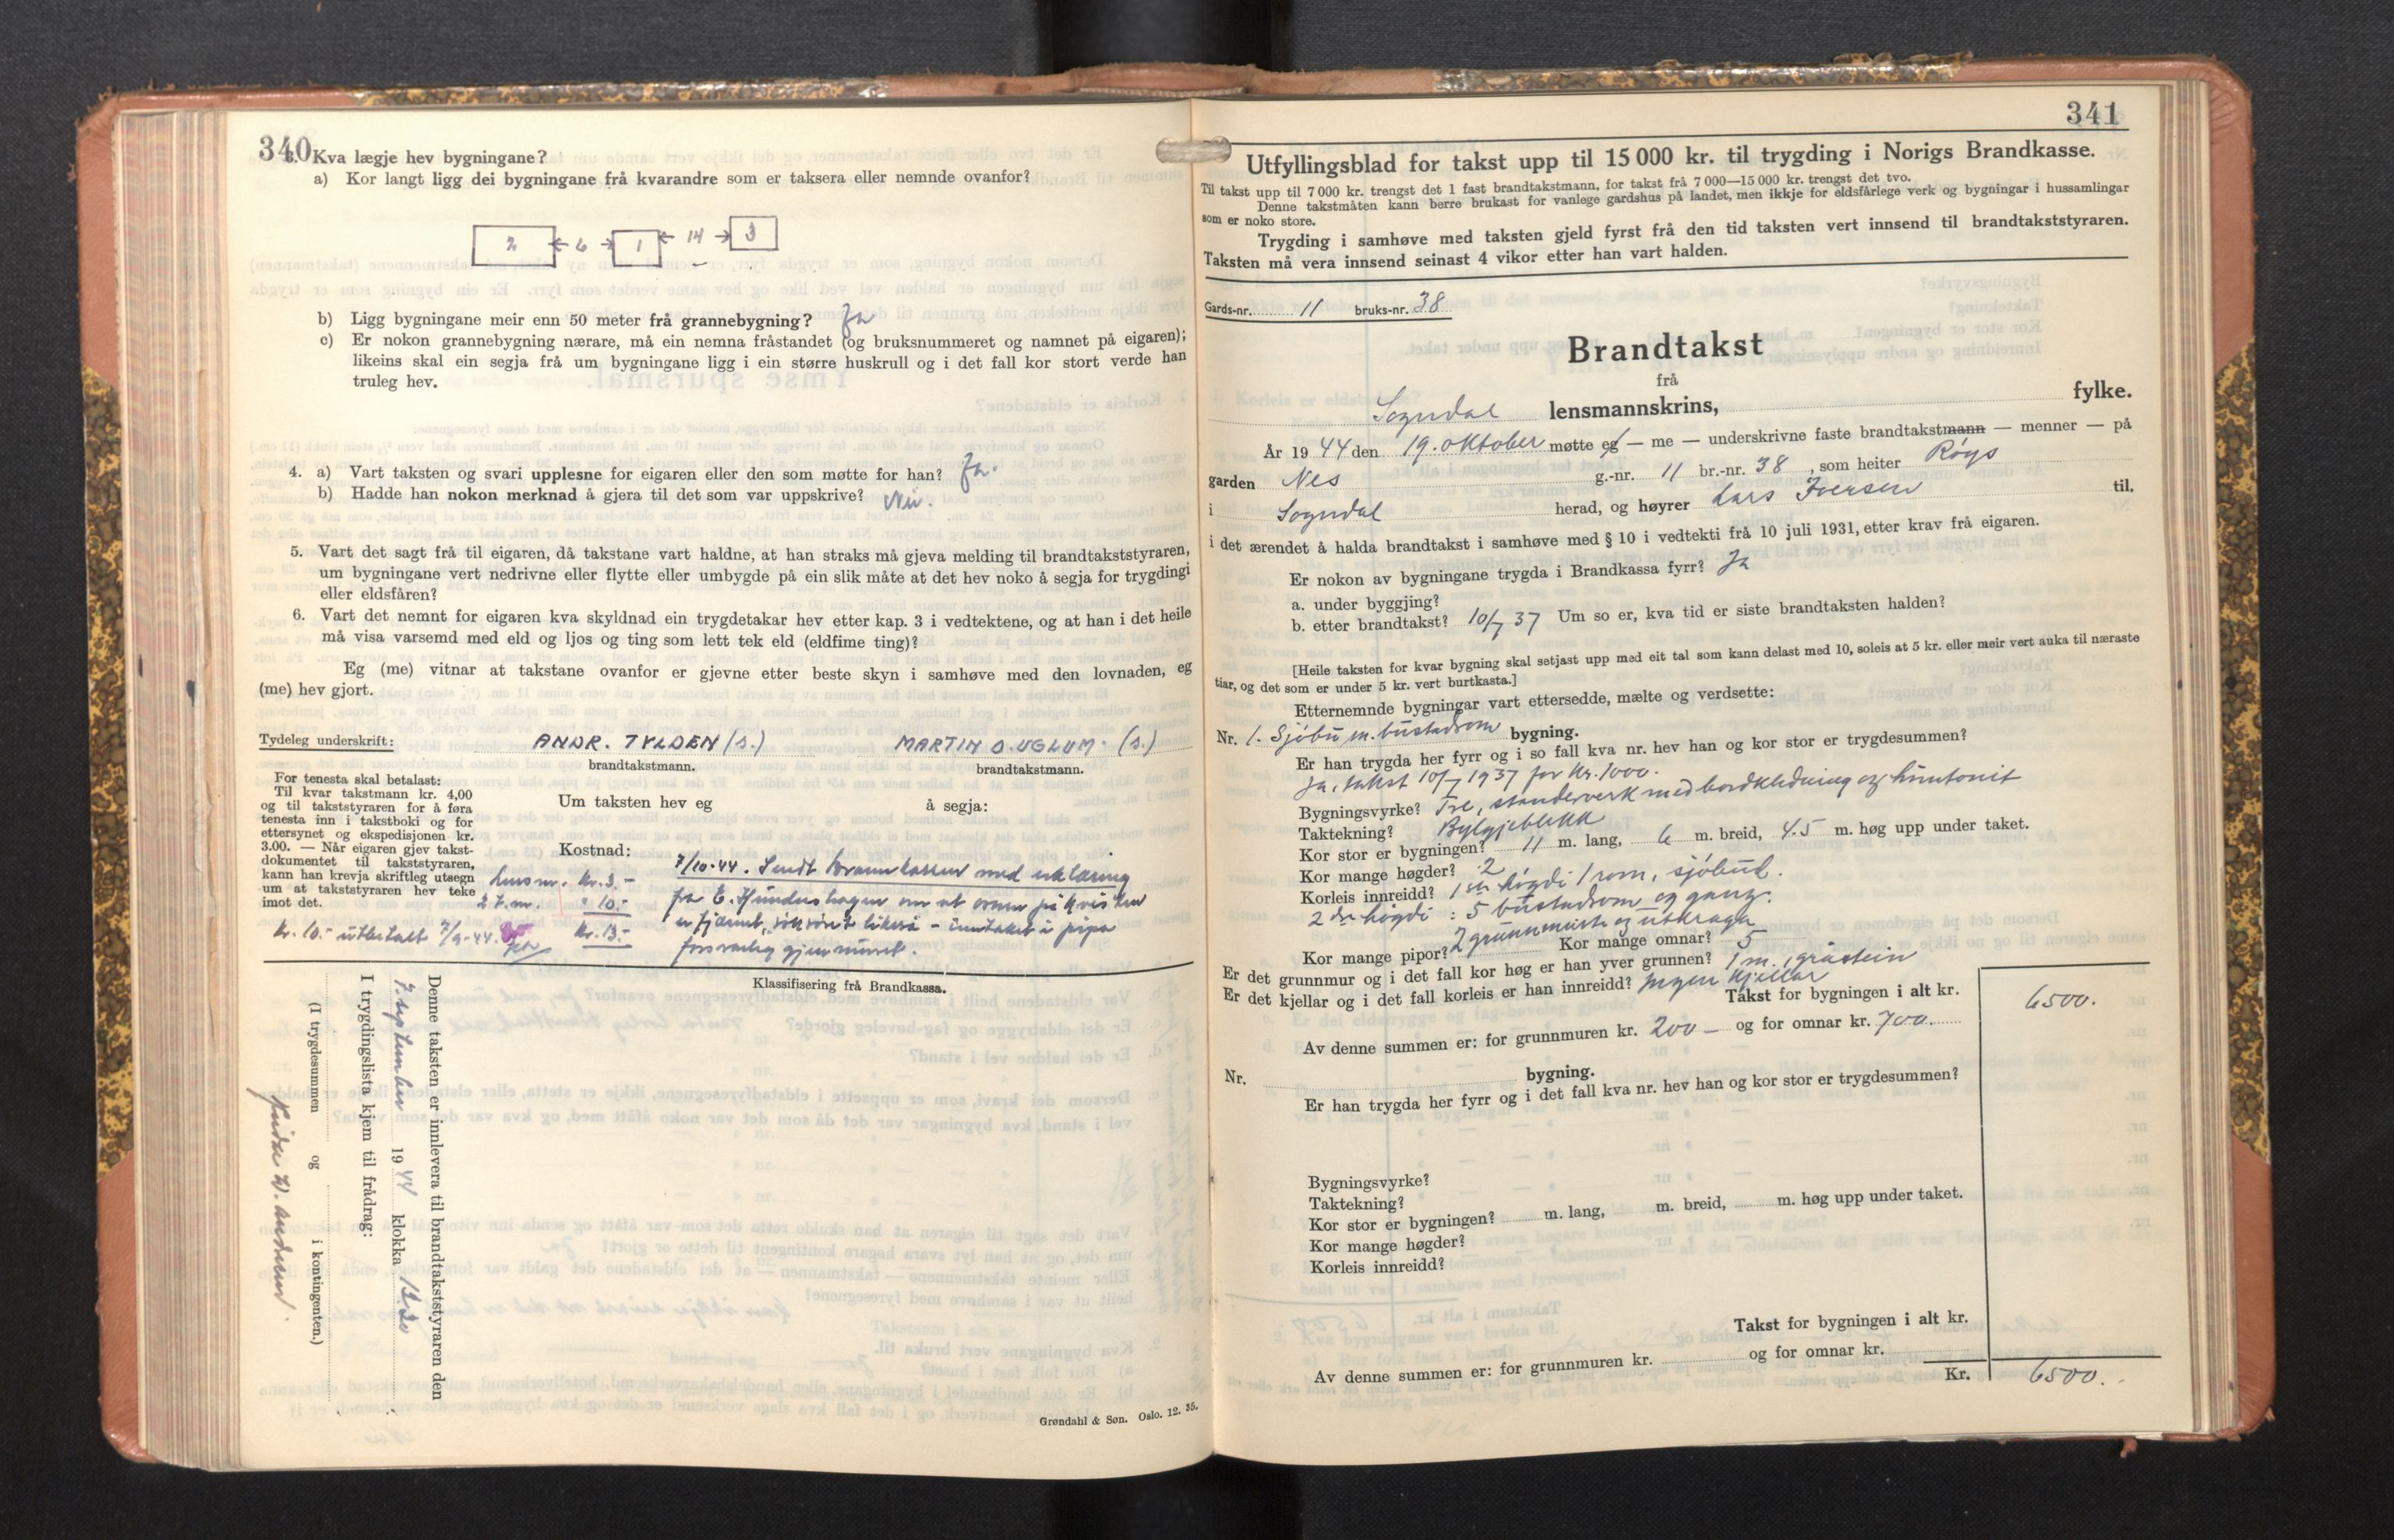 340
3. Kva lægje hev bygningane?
a) Kor langt ligg dei bygningane frå kvarandre som er taksera eller nemnde ovanfor?
2 ← 6 → 1 ← 14 → 3
b) Ligg bygningane meir enn 50 meter frå grannebygning? Ja
c) Er nokon grannebygning nærare, må ein nemna fråstandet (og bruksnummeret og namnet på eigaren);
likeins skal ein segja frå um bygningane ligg i ein større huskrull og i det fall kor stort verde han
truleg hev.
4. a) Vart taksten og svari upplesne for eigaren eller den som møtte for han? Ja.
b) Hadde han nokon merknad å gjera til det som var uppskrive? Nei.
5. Vart det sagt frå til eigaren, då takstane vart haldne, at han straks må gjeva melding til brandtakststyraren,
um bygningane vert nedrivne eller flytte eller umbygde på ein slik måte at det hev noko å segja for trygdingi
eller eldsfåren?
6. Vart det nemnt for eigaren kva skyldnad ein trygdetakar hev etter kap. 3 i vedtektene, og at han i det heile
må visa varsemd med eld og ljos og ting som lett tek eld (eldfime ting)?
Eg (me) vitnar at takstane ovanfor er gjevne etter beste skyn i samhøve med den lovnaden, eg
(me) hev gjort.
Tydeleg underskrift: ANDR. TYLDEN (s.) MARTIN O. UGLUM. (s.)
brandtakstmann. brandtakstmann.
For tenesta skal betalast:
Til kvar takstmann kr. 4,00
og til takststyraren for å føra
tenesta inn i takstboki og for
ettersynet og ekspedisjonen kr.
3.00. — Når eigaren gjev takst-
dokumentet til takststyraren,
kann han krevja skriftleg utsegn
um at takststyraren hev teke
imot det.
Um taksten hev eg å segja:
Kostnad:
Lensm. kr. 3.-
2 t.m. " 10.-
kr. 13.-
Kr. 10.- utbetalt 7/9-44.
7/10-44. Sendt brannkassen med erklæring
fra E. Hundershagen om at ovnen på kvisten
er fjernet, likeså - inntaket i pipa
forsvarleg gjenmuret.
Klassifisering frå Brandkassa.
Denne taksten er innlevera til brandtakststyraren den
7. september 1944 klokka 12.30
I trygdingslista kjem til frådrag:
(I trygdesummen og i kontingenten.)
Grøndahl & Søn. Oslo. 12. 35.
341
Utfyllingsblad for takst upp til 15 000 kr. til trygding i Norigs Brandkasse.
Til takst upp til 7 000 kr. trengst det 1 fast brandtakstmann, for takst frå 7 000—15 000 kr. trengst det tvo.
Denne takstmåten kann berre brukast for vanlege gardshus på landet, men ikkje for eldsfårlege verk og bygningar i hussamlingar
som er noko store.
Trygding i samhøve med taksten gjeld fyrst frå den tid taksten vert innsend til brandtakststyraren.
Taksten må vera innsend seinast 4 vikor etter han vart halden.
Gards-nr. 11 bruks-nr. 38
Brandtakst
frå
Sogndal lensmannskrins, fylke.
År 1944 den 19. oktober møtte eg — me — underskrivne faste brandtakstmann — menner — på
garden Nes g.-nr. 11 br.-nr. 38, som heiter Røys
i Sogndal herad, og høyrer Lars Iversen til,
i det ærendet å halda brandtakst i samhøve med § 10 i vedtekti frå 10 juli 1931, etter krav frå eigaren.
Er nokon av bygningane trygda i Brandkassa fyrr? Ja
a. under byggjing?
b. etter brandtakst? 10/7 37 Um so er, kva tid er siste brandtaksten halden?
[Heile taksten for kvar bygning skal setjast upp med eit tal som kann delast med 10, soleis at 5 kr. eller meir vert auka til næraste
tiar, og det som er under 5 kr. vert burtkasta.]
Etternemnde bygningar vart ettersedde, mælte og verdsette:
Nr. 1. Sjøbu m. bustadrom bygning.
Er han trygda her fyrr og i so fall kva nr. hev han og kor stor er trygdesummen?
Ja, takst 10/7 1937 for kr. 1000.
Bygningsvyrke? Tre, standerverk med bordkledning og huntonit
Taktekning? Bylgjeblekk
Kor stor er bygningen? 11 m. lang, 6 m. breid, 4.5 m. høg upp under taket.
Kor mange høgder? 2
Korleis innreidd? 1ste høgdi 1 rom, sjøbud.
2dre høgdi: 5 bustadrom og gang.
Kor mange pipor? 2 grunnmurte og utkraga Kor mange omnar? 5
Er det grunnmur og i det fall kor høg er han yver grunnen? 1 m., gråstein
Er det kjellar og i det fall korleis er han innreidd? Ingen kjellar
Takst for bygningen i alt kr. 6500.
Av denne summen er: for grunnmuren kr. 200 — og for omnar kr. 700.
Nr. bygning.
Er han trygda her fyrr og i det fall kva nr. hev han og kor stor er trygdesummen?
Bygningsvyrke?
Taktekning?
Kor stor er bygningen? m. lang, m. breid, m. høg upp under taket.
Kor mange høgder?
Korleis innreidd?
Takst for bygningen i alt kr.
Av denne summen er: for grunnmuren kr. og for omnar kr.
Kr. 6500.